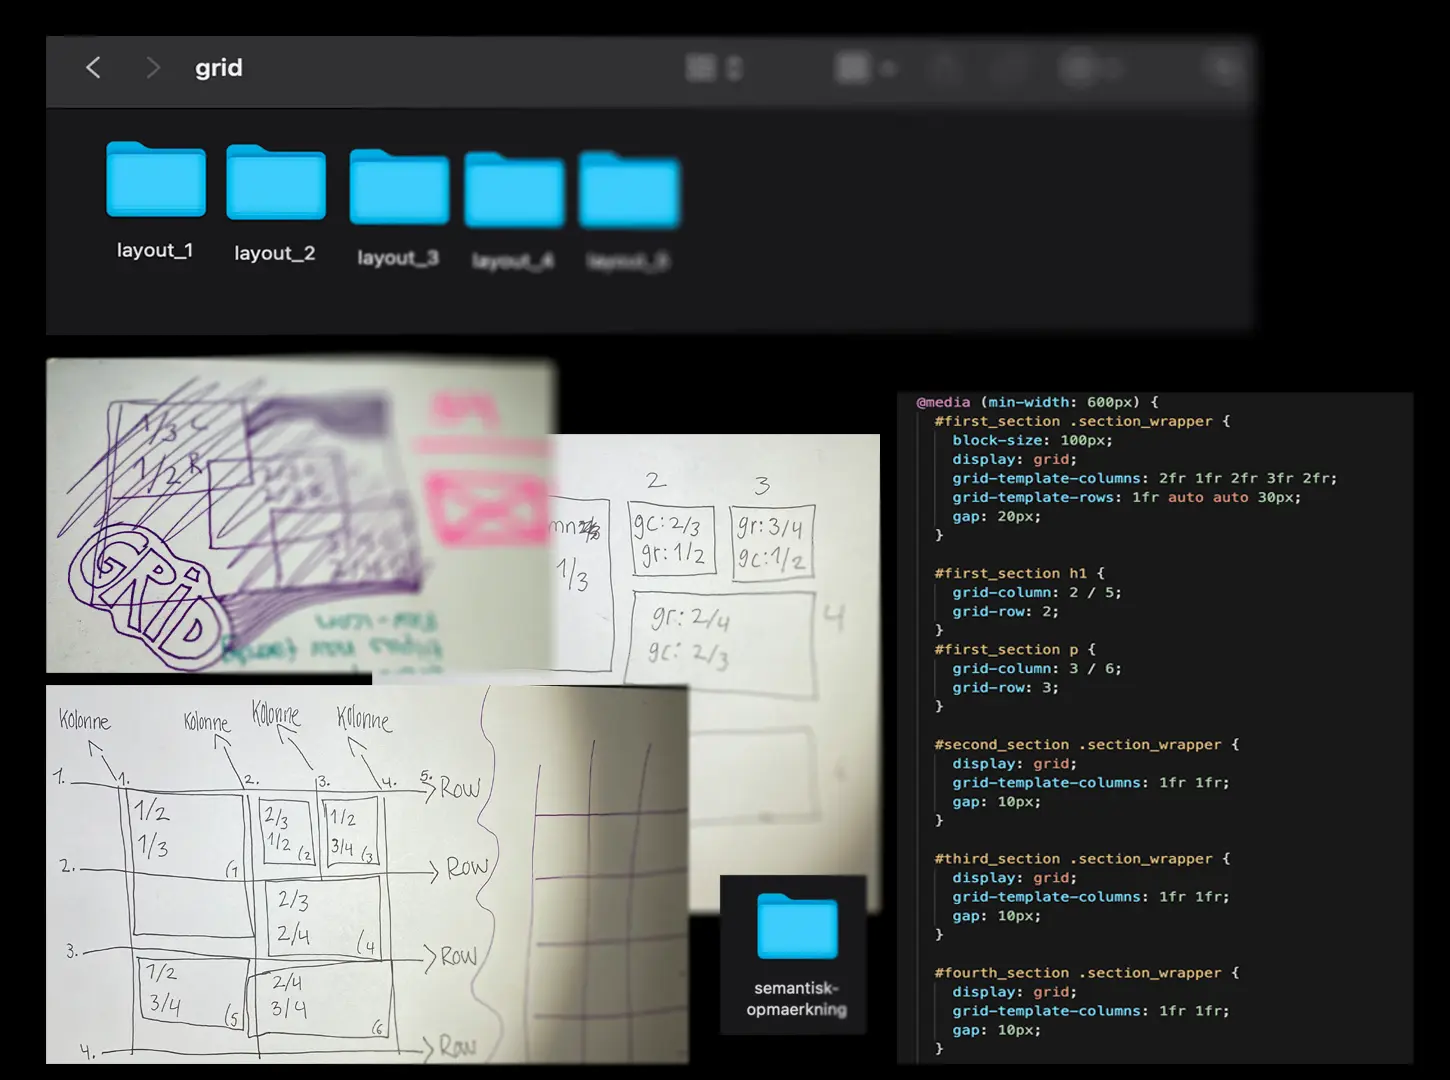 grid
layout_1
layout_2
layout_3
layout_4
1/3 C
1/2 R
GRID
2
3
1/3
gc: 2/3
gr: 1/2
gr: 3/4
gc: 1/2
gr: 2/4
gc: 2/3
4
Kolonne
Kolonne
Kolonne
Kolonne
1.
1.
2.
3.
4.
5.
Row
1/2
1/3
(1
2/3
1/2
(2
1/2
3/4
(3
2.
Row
2/3
2/4
(4
3.
Row
1/2
3/4
(5
2/4
3/4
(6
4.
Row
semantisk-
opmaerkning
@media (min-width: 600px) {
#first_section .section_wrapper {
block-size: 100px;
display: grid;
grid-template-columns: 2fr 1fr 2fr 3fr 2fr;
grid-template-rows: 1fr auto auto 30px;
gap: 20px;
}
#first_section h1 {
grid-column: 2 / 5;
grid-row: 2;
}
#first_section p {
grid-column: 3 / 6;
grid-row: 3;
}
#second_section .section_wrapper {
display: grid;
grid-template-columns: 1fr 1fr;
gap: 10px;
}
#third_section .section_wrapper {
display: grid;
grid-template-columns: 1fr 1fr;
gap: 10px;
}
#fourth_section .section_wrapper {
display: grid;
grid-template-columns: 1fr 1fr;
gap: 10px;
}